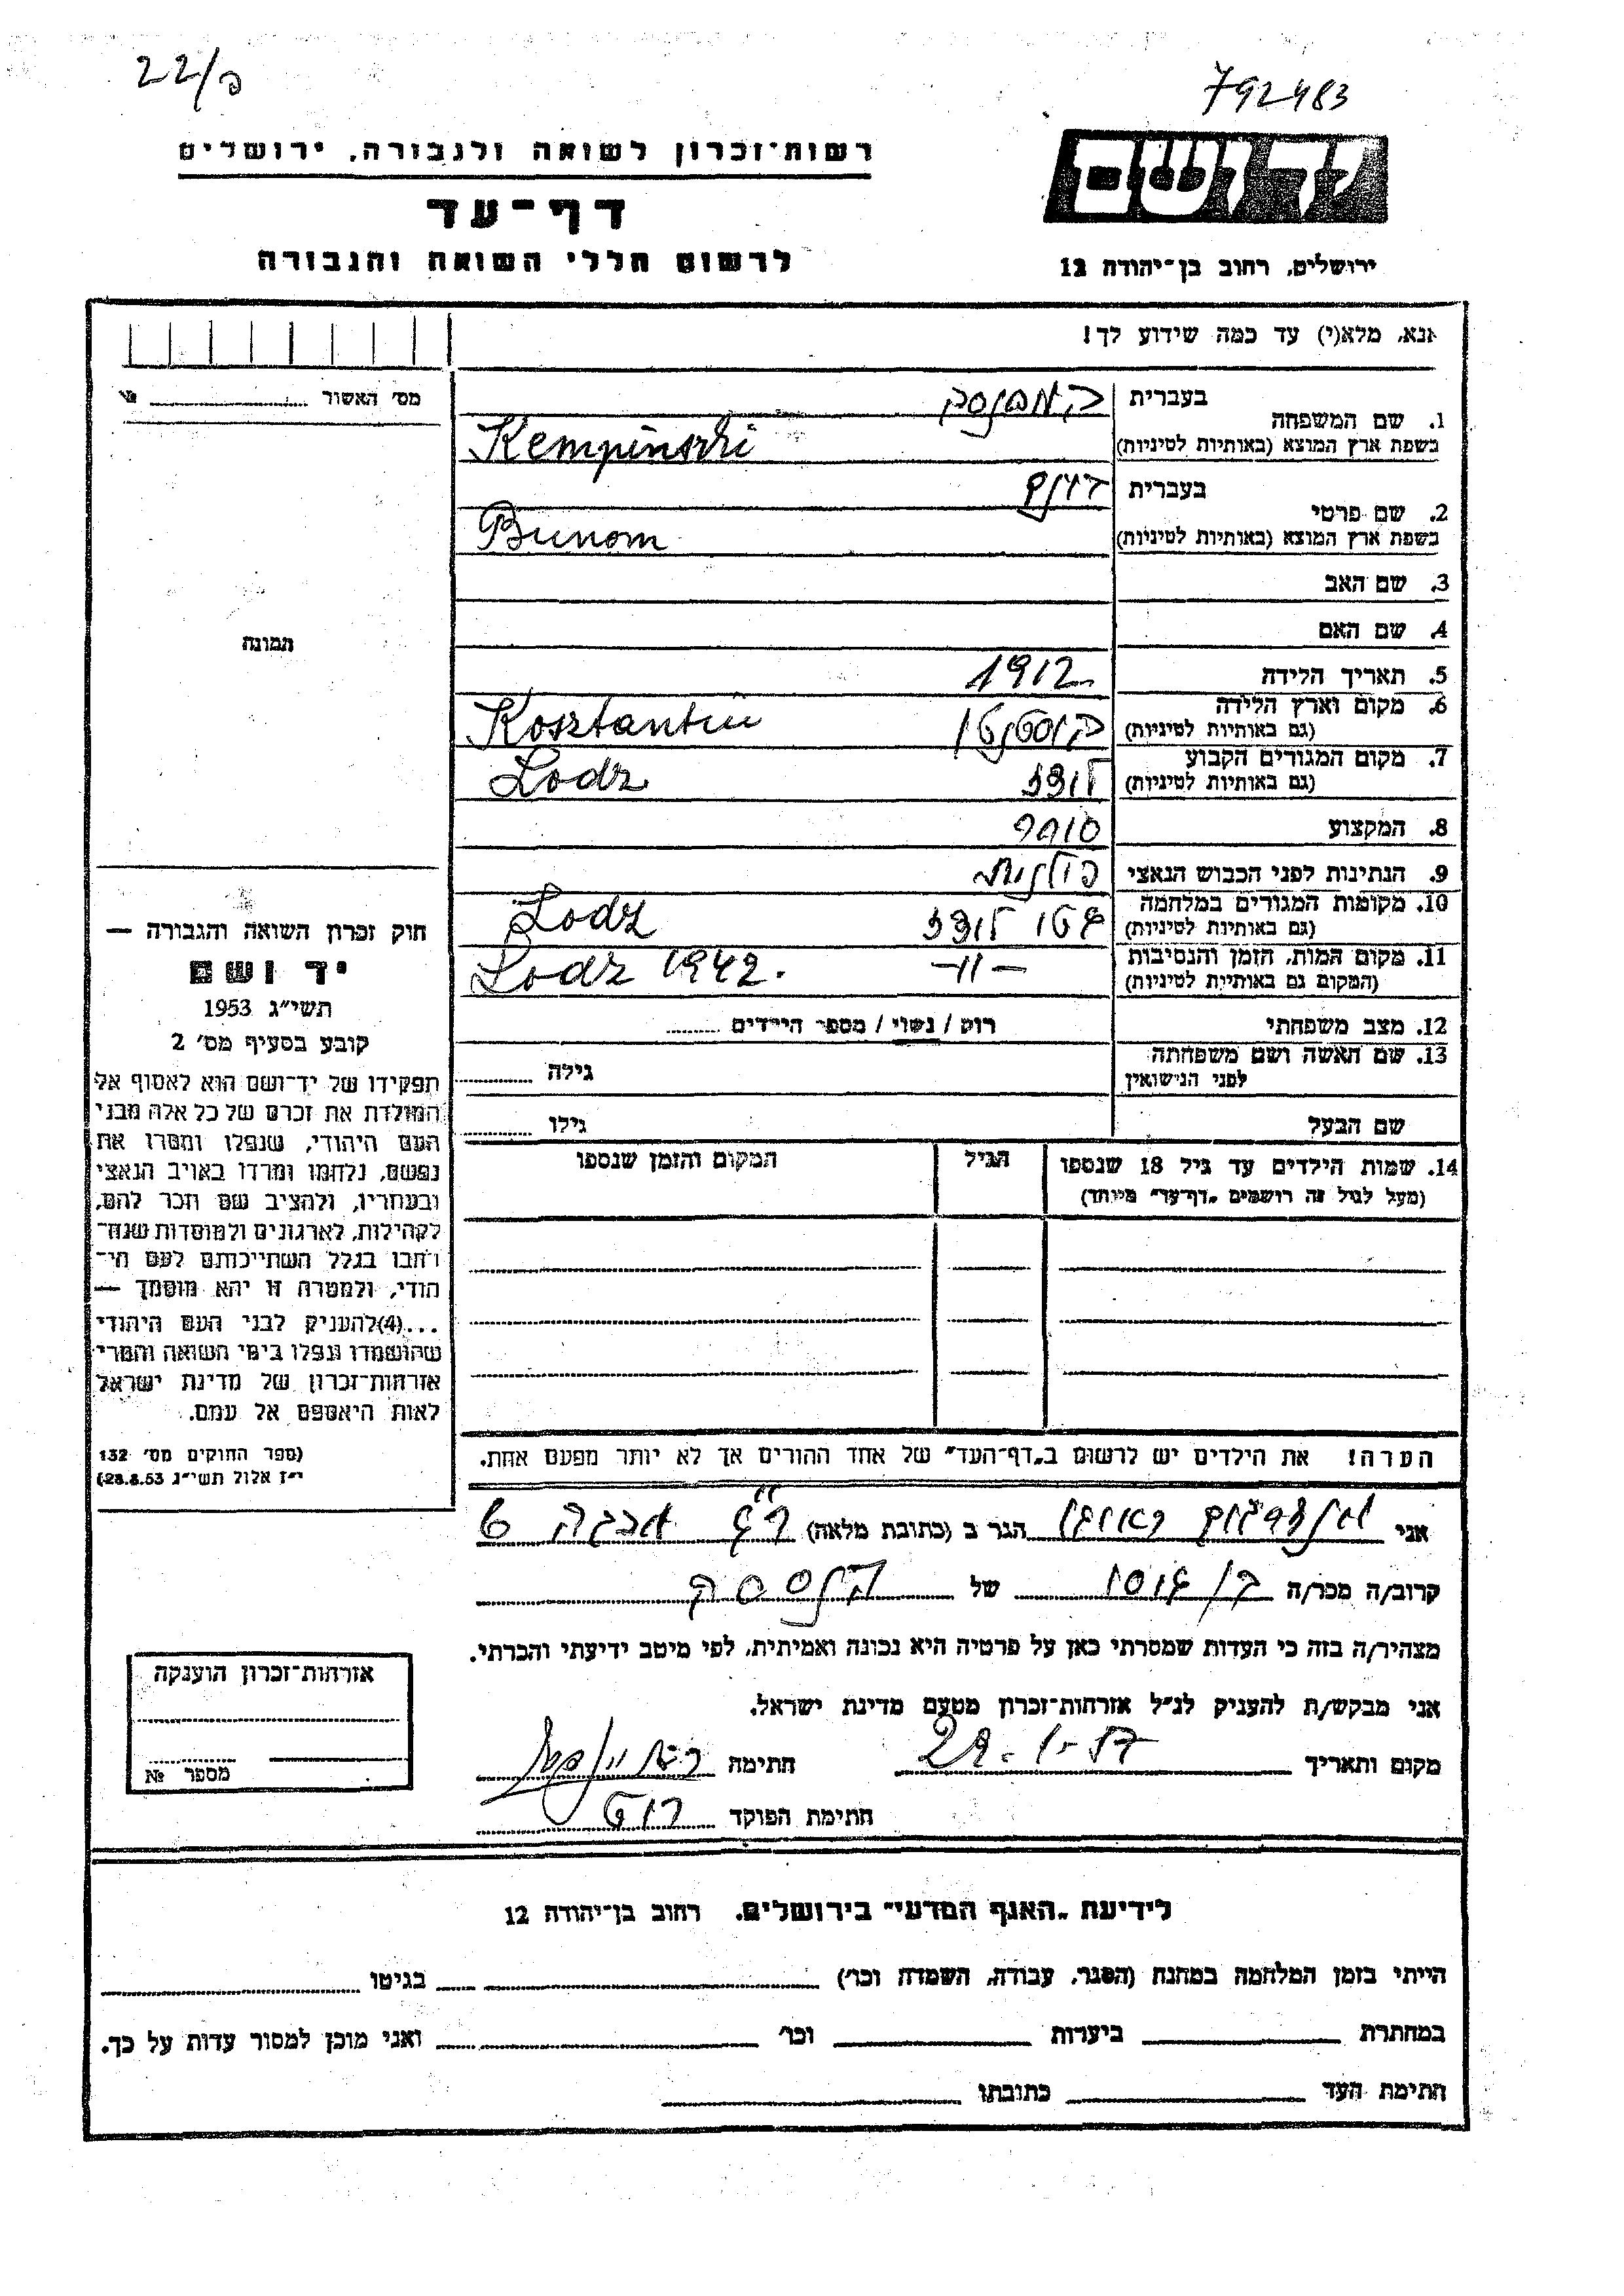 22/פ
792483
רשות־זכרון לשואה ולגבורה, ירושלים
דף־עד
לרשום חללי השואה והגבורה
יד ושם
ירושלים, רחוב בן־יהודה 12
אנא, מלא(י) עד כמה שידוע לך!
מס' האשור № 
1. שם המשפחה
בעברית
בשפת ארץ המוצא (באותיות לטיניות)
Kempinski
2. שם פרטי
בעברית בונם
בשפת ארץ המוצא (באותיות לטיניות)
Bunom
3. שם האב
4. שם האם
5. תאריך הלידה 1912
6. מקום וארץ הלידה
(גם באותיות לטיניות)
קוסטנטין Kosztantin
7. מקום המגורים הקבוע
(גם באותיות לטיניות)
לודז Lodz
8. המקצוע סוחר
9. הנתינות לפני הכבוש הנאצי פולנית
10. מקומות המגורים במלחמה
(גם באותיות לטיניות)
גטו לודז Lodz
11. מקום המות, הזמן והנסיבות
(המקום גם באותיות לטיניות)
–״– Lodz 1942.
12. מצב משפחתי רוק / נשוי / מספר הילדים
13. שם האשה ושם משפחתה
לפני הנישואין
גילה
שם הבעל גילו
14. שמות הילדים עד גיל 18 שנספו
(מעל לגיל זה רושמים „דף־עד״ מיוחד)
הגיל
המקום והזמן שנספו
הערה! את הילדים יש לרשום ב„דף־העד״ של אחד ההורים אך לא יותר מפעם אחת.
תמונה
חוק זכרון השואה והגבורה —
יד ושם
תשי״ג 1953
קובע בסעיף מס' 2
תפקידו של יד־ושם הוא לאסוף אל
המולדת את זכרם של כל אלה מבני
העם היהודי, שנפלו ומסרו את
נפשם, נלחמו ומרדו באויב הנאצי
ובעוזריו, ולהציב שם וזכר להם,
לקהילות, לארגונים ולמוסדות שנח־
רבו בגלל השתייכותם לעם הי־
הודי, ולמטרה זו יהא מוסמך —
...(4) להעניק לבני העם היהודי
שהושמדו ונפלו בימי השואה והמרי
אזרחות־זכרון של מדינת ישראל
לאות היאספם אל עמם.
(ספר החוקים מס' 132
י״ז אלול תשי״ג 28.8.53)
אני ראובן הגר ב (כתובת מלאה) ר״ג 6
קרוב/ה מכר/ה בן דוסו של
מצהיר/ה בזה כי העדות שמסרתי כאן על פרטיה היא נכונה ואמיתית, לפי מיטב ידיעתי והכרתי.
אני מבקש/ת להעניק לנ״ל אזרחות־זכרון מטעם מדינת ישראל.
מקום ותאריך 29.1.57 חתימה
חתימת הפוקד
אזרחות־זכרון הוענקה
מספר №
לידיעת „האגף המדעי״ בירושלים. רחוב בן־יהודה 12
הייתי בזמן המלחמה במחנה (הסגר, עבודה, השמדה וכו') בגיטו
במחתרת ביערות וכו' ואני מוכן למסור עדות על כך.
חתימת העד כתובתו